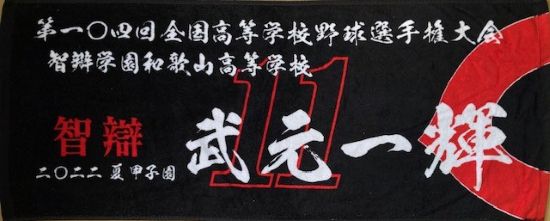 第一〇四回全国高等学校野球選手権大会
智辯学園和歌山高等学校
11
智辯
武元一輝
二〇二二夏甲子園